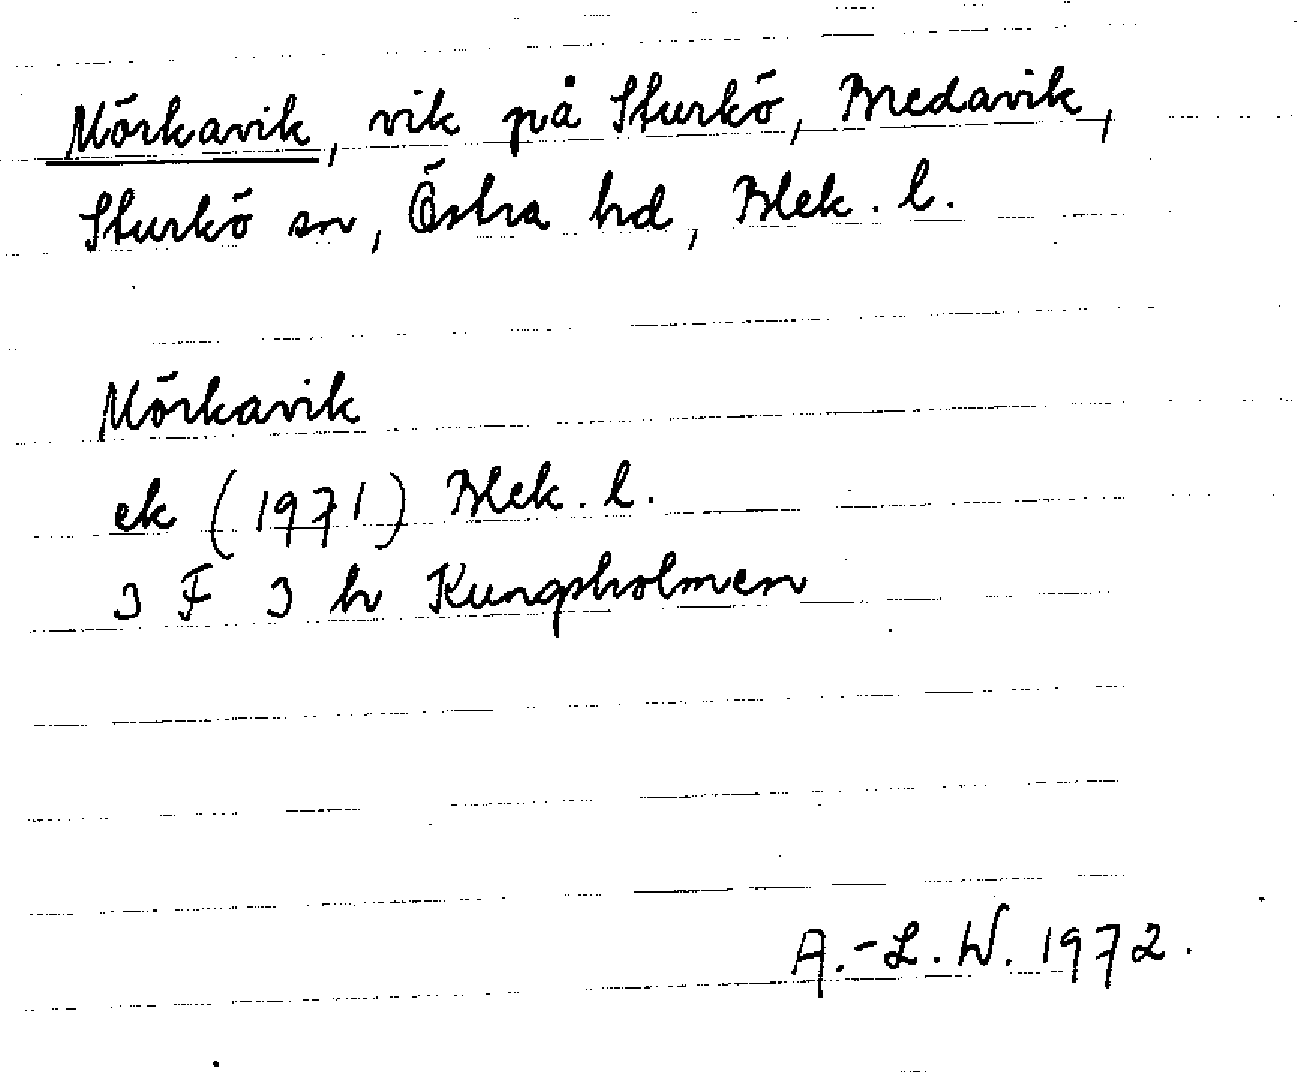 Mörkavik, vik på Sturkö, Bredavik,
Sturkö sn, Östra hd, Blek. l.
Mörkavik
ek (1971) Blek. l.
3 F 3 h Kungsholmen
A.-L. W. 1972.